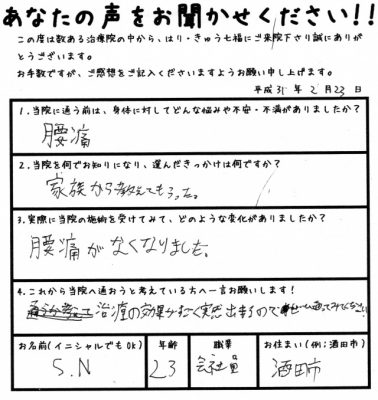 あなたの声をお聞かせください!!
この度は数ある治療院の中から、はり・きゅう七福にご来院下さり誠にありが
とうございます。
お手数ですが、ご感想をご記入くださいますようお願い申し上げます。
平成 31 年 2 月 23 日
1.当院に通う前は、身体に対してどんな悩みや不安・不満がありましたか?
腰痛
2.当院を何でお知りになり、選んだきっかけは何ですか?
家族から教えてもらった。
3.実際に当院の施術を受けてみて、どのような変化がありましたか?
腰痛がなくなりました。
4.これから当院へ通おうと考えている方へ一言お願いします!
治療の効果がすごく実感出来るので
お名前(イニシャルでもOK) 年齢 職業 お住まい(例:酒田市)
S.N 23 会社員 酒田市